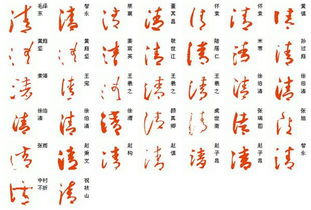 清 毛泽东 清 智永 清 蔡襄 清 董其昌 清 怀素 清 怀素 清 黄慎
清 黄庭坚 清 黄庭坚 清 姜宸英 清 敬世江 清 陆居仁 清 米芾 清 孙过庭
清 索靖 清 王宠 清 王羲之 清 王羲之 清 王羲之 清 徐伯清 清 徐伯清
清 徐伯清 清 徐伯清 清 徐渭 清 颜真卿 清 虞世南 清 张瑞图 清 张旭
清 张雨 清 赵秉文 清 赵构 清 清 赵子昂 清 赵子昂 清 智永
清 中村不折 清 祝枝山